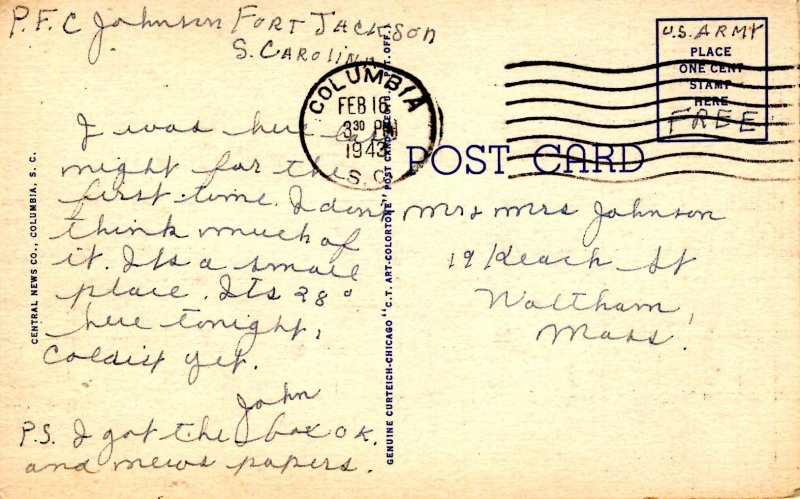 P.F.C Johnson Fort Jackson
S. Carolina
U.S. ARMY
PLACE
ONE CENT
STAMP
HERE
FREE
COLUMBIA
FEB 16
3 30 PM
1943
S.C.
POST CARD
I was here last
night for the
first time. I dont
think much of
it. Its a small
place. Its 28°
here tonight,
Coldist yet.
John
P.S. I got the box OK.
and news papers.
Mr & Mrs Johnson
19 Keach St
Waltham,
Mass.
CENTRAL NEWS CO., COLUMBIA, S. C.
GENUINE CURTEICH-CHICAGO "C.T. ART-COLORTONE" POST CARD (REG. U.S. PAT. OFF.)